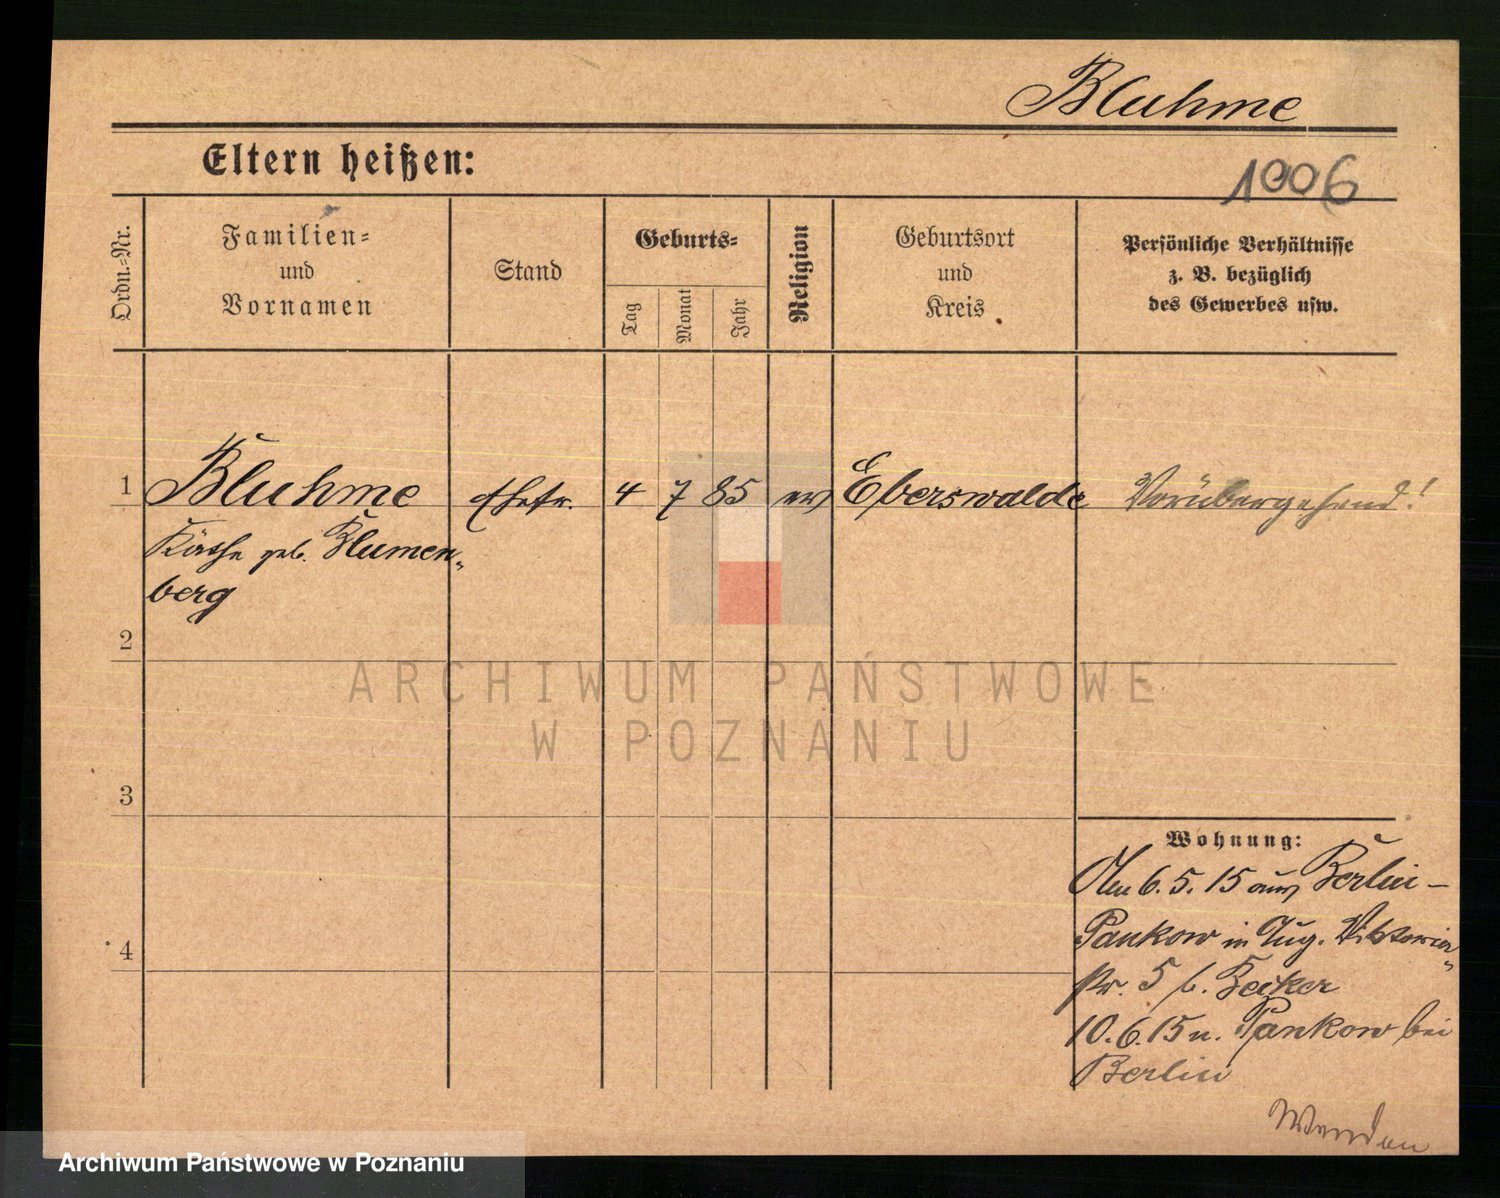 Bluhme
Eltern heißen:
1006
Ordn.-Nr.
Familien-
und
Vornamen
Stand
Geburts-
Tag
Monat
Jahr
Religion
Geburtsort
und
Kreis
Persönliche Verhältnisse
z. B. bezüglich
des Gewerbes usw.
1 Bluhme Ehefr. 4 7 85 ev Eberswalde Vorübergehend!
Käthe geb. Blumen-
berg
2
3
4
Wohnung:
6.5.15 aus Berlin-
Pankow in Aug. Viktoria-
str. 5 b. Becker
10.6.15 n. Pankow bei
Berlin
Wenden
ARCHIWUM PAŃSTWOWE
W POZNANIU
Archiwum Państwowe w Poznaniu